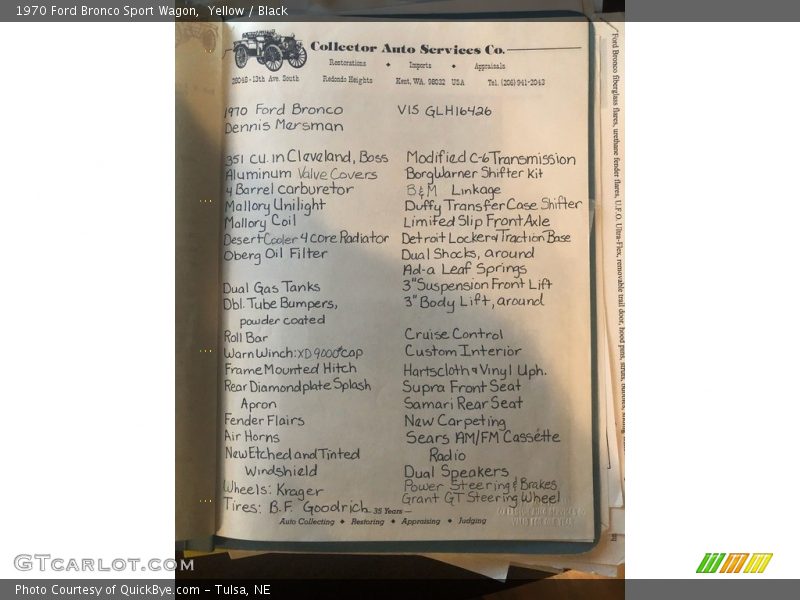 1970 Ford Bronco Sport Wagon,  Yellow / Black
Collector Auto Services Co.
Restorations ♦ Imports ♦ Appraisals
26048 - 13th Ave. South Redondo Heights Kent, WA. 98032 USA Tel. (206) 941-2043
1970 Ford Bronco VIS GLH16426
Dennis Mersman
351 cu. in Cleveland, Boss
Aluminum Valve Covers
4 Barrel carburetor
Mallory Unilight
Mallory Coil
Desert Cooler 4 core Radiator
Oberg Oil Filter
Dual Gas Tanks
Dbl. Tube Bumpers,
powder coated
Roll Bar
Warn Winch: XD9000# cap
Frame Mounted Hitch
Rear Diamondplate Splash
Apron
Fender Flairs
Air Horns
New Etched and Tinted
Windshield
Wheels: Krager
Tires: B.F. Goodrich
Modified C-6 Transmission
Borg Warner Shifter Kit
B&M Linkage
Duffy Transfer Case Shifter
Limited Slip Front Axle
Detroit Locker & Traction Base
Dual Shocks, around
Ad-a Leaf Springs
3" Suspension Front Lift
3" Body Lift, around
Cruise Control
Custom Interior
Hartscloth & Vinyl Uph.
Supra Front Seat
Samari Rear Seat
New Carpeting
Sears AM/FM Cassette
Radio
Dual Speakers
Power Steering & Brakes
Grant GT Steering Wheel
35 Years —
Auto Collecting ♦ Restoring ♦ Appraising ♦ Judging
Ford Bronco fiberglass flares, urethane fender flares, U.F.O. Ultra-Flex, removable trail door, hood pins, struts,
GTcarlot.com
Photo Courtesy of QuickBye.com – Tulsa, NE